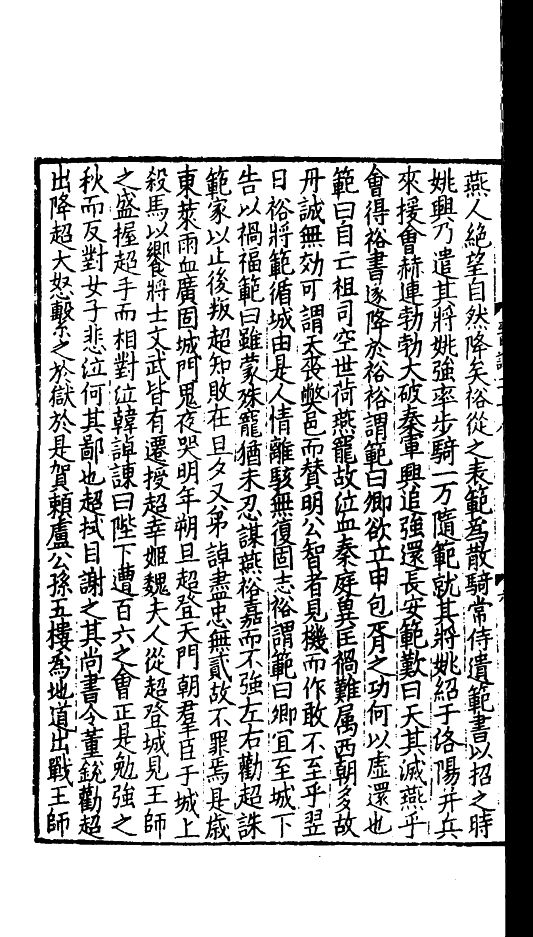 燕人絶望自然降矣裕從之表範爲散騎常侍遺範書以招之時
姚興乃遣其將姚強率步騎一万隨範就其將姚紹于洛陽并兵
來援會赫連勃勃大破秦軍興追強還長安範歎曰天其滅燕乎
會得裕書遂降於裕裕謂範曰卿欲立申包胥之功何以虛還也
範曰自亡祖司空世荷燕寵故泣血秦庭兾匡禍難属西朝多故
丹誠無効可謂天喪弊邑而賛明公智者見機而作敢不至乎翌
日裕將範循城由是人情離駭無復固志裕謂範曰卿宜至城下
告以禍福範曰雖蒙殊寵猶未忍謀燕裕嘉而不強左右勸超誅
範家以止後叛超知敗在旦夕又弟𧨳盡忠無貳故不罪焉是歳
東萊雨血廣固城門鬼夜哭明年朔旦超登天門朝羣臣于城上
殺馬以饗將士文武皆有遷授超幸姬魏夫人從超登城見王師
之盛握超手而相對泣韓𧨳諫曰陛下遭百六之會正是勉強之
秋而反對女子悲泣何其鄙也超拭目謝之其尚書令董銳勸超
出降超大怒繫之於獄於是賀賴盧公孫五樓爲地道出戰王師